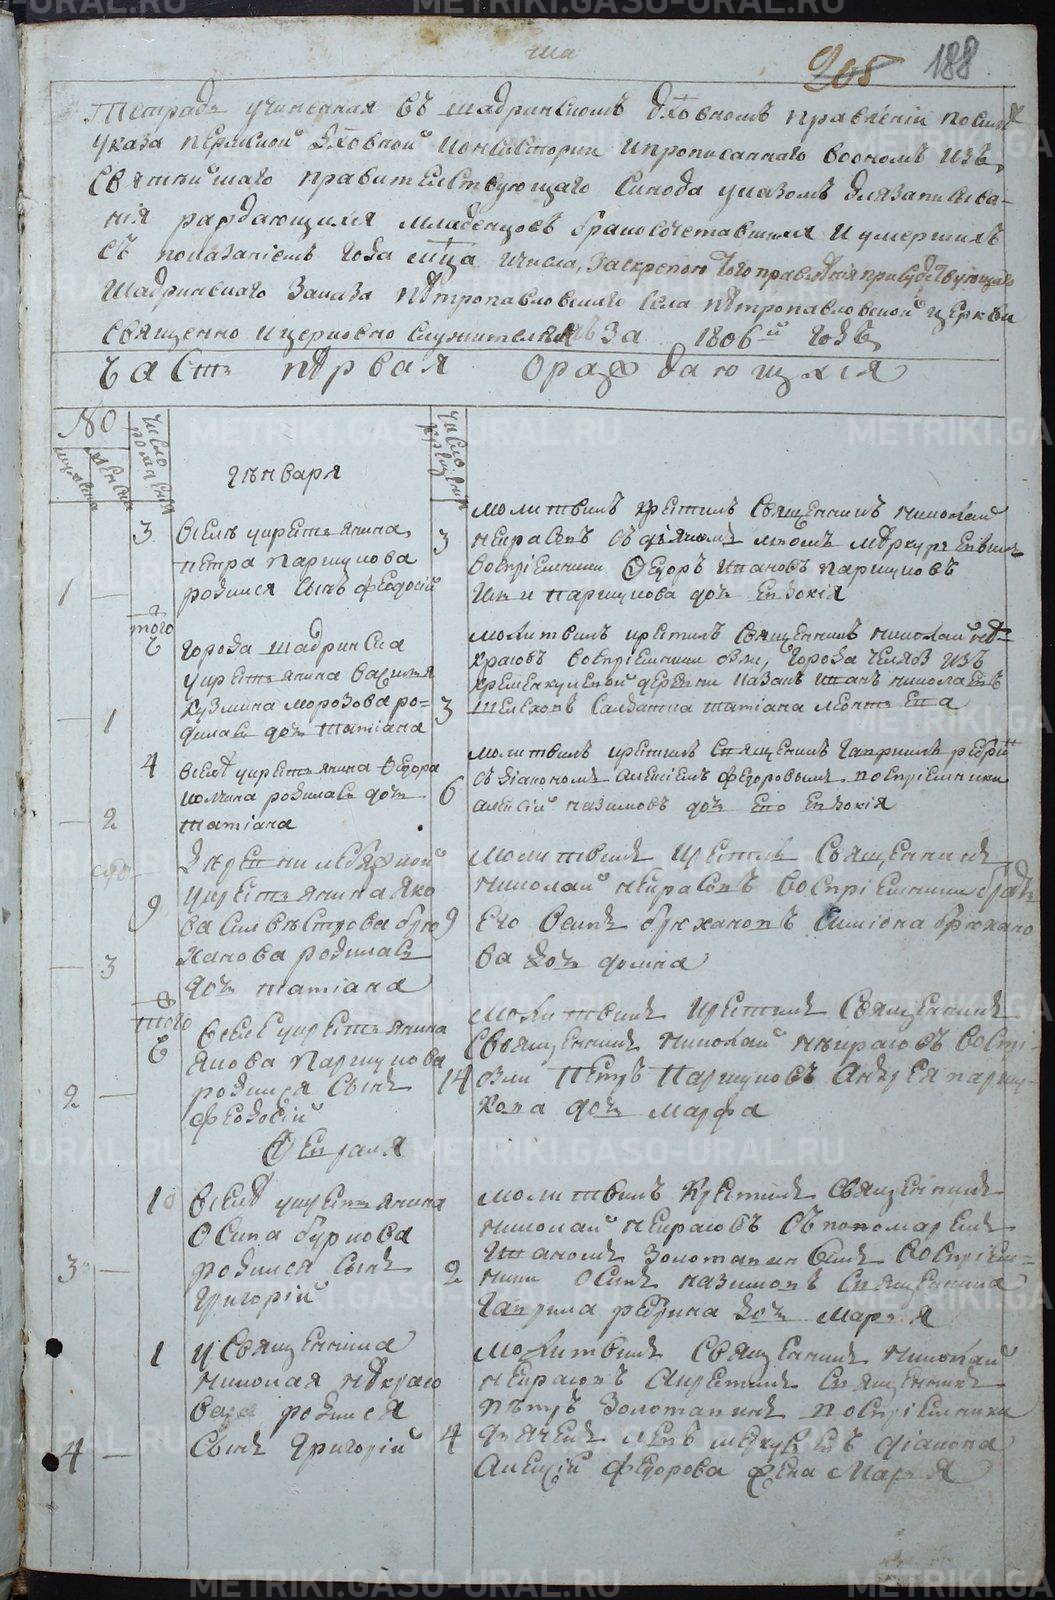 208 188
Тетрадь учиненная въ шадринскомъ дховномъ правленіи посилѣ
указа пермской дховной консисторіи ипрописаннаго вономъ изъ
святѣйшаго правителствующаго синода указомъ длязаписыва-
нія раждающихся младенцовъ бракосочетавшихся иумершихъ
съ показаніемъ года мца ичисла, заскрепою того правленія присудствующихъ
шадринскаго заказа петропавловскаго села петропавловской церкви
священно ицерковно служителямъ за 1806й годъ
часть первая ораждающихся
№
число рожденія
число крещенія
генваря
3 всемъ крестьянина
петра паршукова
родился сынъ федосій
1 —
3 молитвилъ крестилъ священникъ николай
некрасовъ
воспріемники Федоръ ивановъ паршуковъ
паршукова дочь евдокія
того
города шадринска
крестьянина василья
кузмина морозова ро-
дилась дочь татіана
— 1
3 молитвилъ крестилъ священникъ николай не-
красовъ воспріемники были, города челяб изъ
деревни казакъ иванъ николаевъ
шелеховъ салдатка татіана
4 всемъ крестьянина федора
родилась дочь
татіана
— 2
6 молитвилъ крестилъ священникъ гаврилъ
съ діакономъ алексіемъ федоровымъ воспріемники
алексій назимовъ дочь его евдокія
9 деревни лебяжной
крестьянина яко
ва силвестрова брю
ханова родилась
дочь татіана
— 3
9 молитвилъ крестилъ священникъ
николай некрасовъ воспріемники братъ
его осипъ брюхановъ симіона брюхано
ва дочь домна
того
всемъ крестьянина
якова паршукова
родился сынъ
федосій
2 —
14 молитвилъ крестилъ священникъ
священникъ николай некрасовъ воспрі-
были петръ паршуковъ андрея паршу-
кова дочь марфа
Февраля
10 всемъ крестьянина
осипа буркова
родился сынъ
григорій
3 —
2 молитвилъ крестилъ священникъ
николай некрасовъ съ пономаремъ
иваномъ золотавинымъ воспріем-
ники осипъ назимовъ священника
гаврила рединa дочь марья
1 у священника
николая некрасо
ва родился
сынъ григорій
4 —
4 молитвилъ священникъ николай
некрасовъ акрестилъ священникъ
петръ золотавинъ воспріемники
дьячекъ левъ меркурьевъ діакона
алексій федорова жена марья